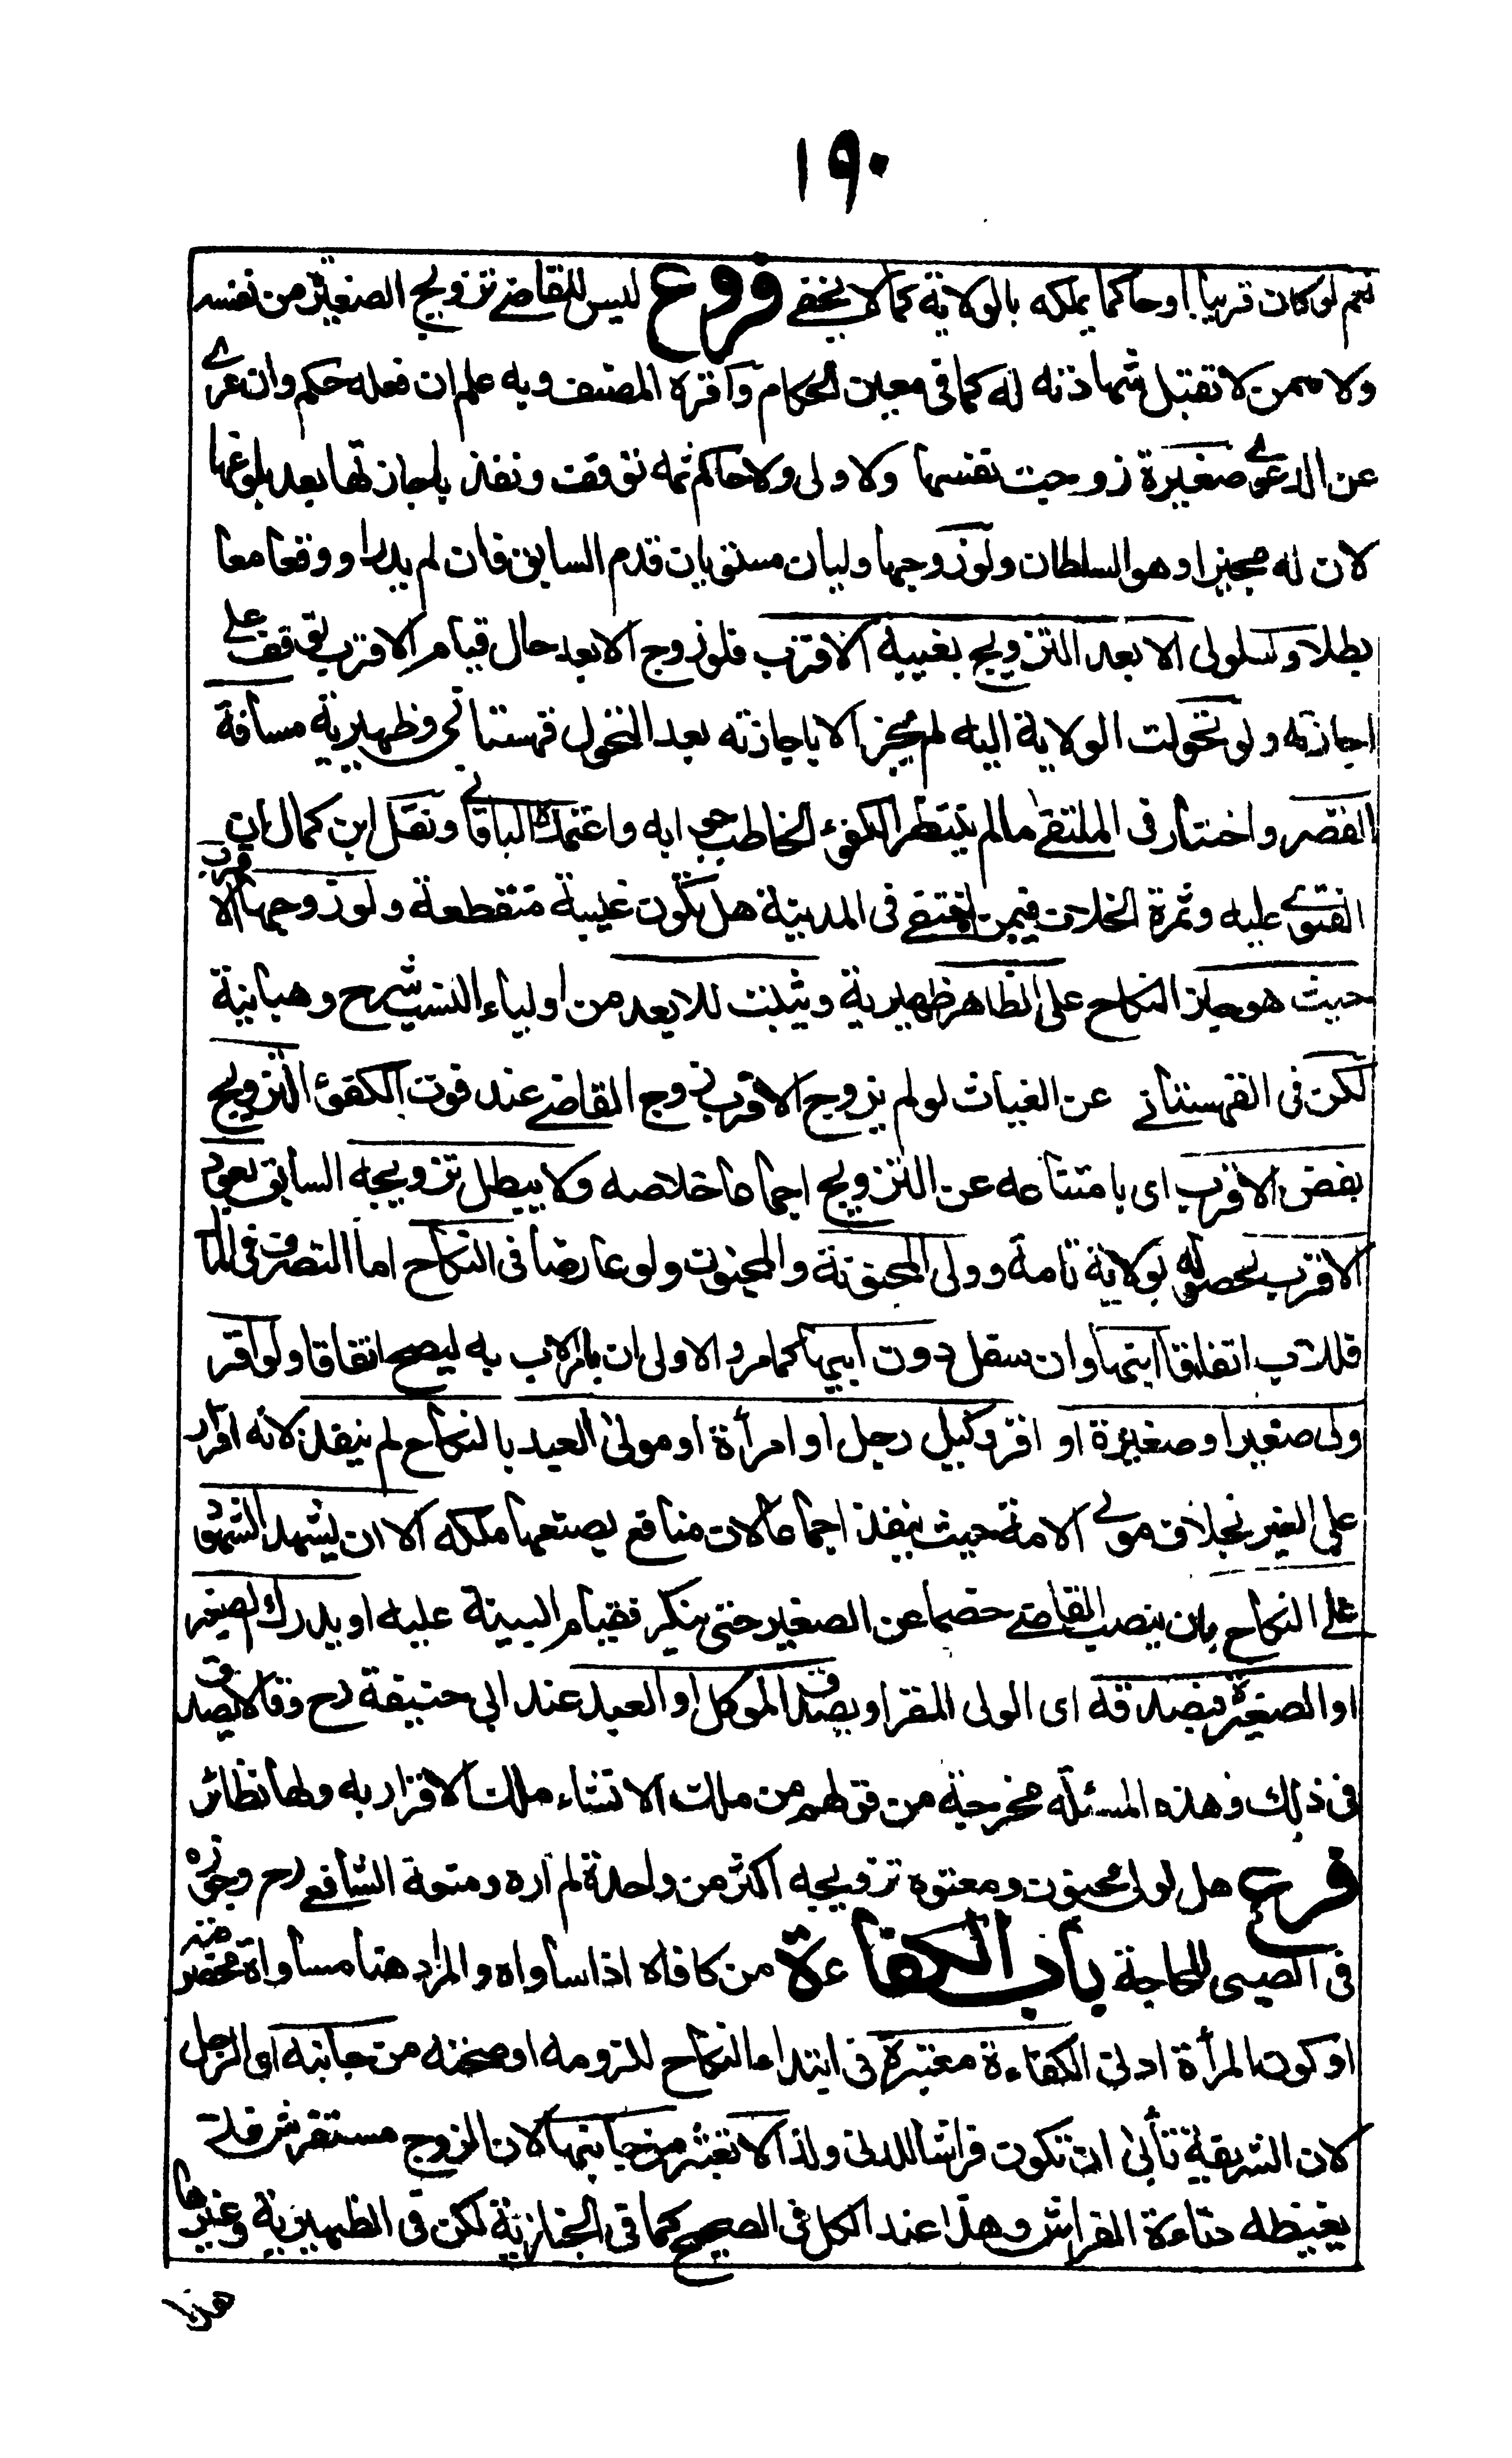 ١٩٠
نعم لو كان قريبا او حاكما يملكه بالولاية كما لا يخفى فروع ليس للقاضى تزويج الصغيرة من نفسه
ولا ممن لا تقبل شهادته له كما فى معين الحكام واقره المصنف وبه علم ان فعله حكم وان عرى
عن الدعوى صغيرة زوجت نفسها ولا ولى ولا حاكم ثمه توقف ونفذ باجازتها بعد بلوغها
لان له مجيزا وهو السلطان ولو زوجها وليان مستويان قدم السابق فان لم يدر او وقعا معا
بطلا وللولى الابعد التزويج بغيبه الاقرب فلو زوج الابعد حال قيام الاقرب توقف على
اجازته ولو تحولت الولاية اليه لم يجز الا باجازته بعد التحول قهستانى وظهيرية مسافة
القصر واختار فى الملتقى ما لم ينتظر الكفوء الخاطب جوابه واعتمده الباقانى ونقل ابن كمال ان
الفتوى عليه وثمرة الخلاف فيمن اختفى فى المدينة هل تكون غيبة منقطعة ولو زوجها الاقرب
حيث هو جاز النكاح على الظاهر ظهيرية ويثبت للابعد من اولياء النسب شرح وهبانية
لكن فى القهستانى عن الغياث لو لم يزوج الاقرب زوج القاضى عند فوت الكفؤ التزويج
بعضل الاقرب اى بامتناعه عن التزويج اجماعا خلاصه ولا يبطل تزويجه السابق بعود
الاقرب لحصوله بولاية تامة وولى المجنونة والمجنون ولو عارضا فى النكاح اما التصرف فى المال
فللاب اتفاقا ابنها وان سفل دون ابيها كما مر والاولى ان يامر الاب به ليصح اتفاقا ولو اقر
ولى صغير او صغيرة او اقر وكيل رجل او امرأة او مولى العبد بالنكاح لم ينفذ لانه اقرار
على الغير بخلاف مولى الامة حيث ينفذ اجماعا لان منافع بضعها ملكه الا ان يشهد الشهود
على النكاح بان ينصب القاضى خصما عن الصغير حتى ينكر فقيام البينة عليه او يدرك الصغير
او الصغيرة فيصدقه اى الولى المقر او يصدق الموكل او العبد عند ابى حنيفة رح وقالا يصدق
فى ذلك وهذه المسئلة مخرجة من قولهم من ملك الانشاء ملك الاقرار به ولها نظائر
فرع هل لولى مجنون ومعتوه تزويجه اكثر من واحدة لم اره ومنعه الشافعى رح وجوزه
فى الصبى للحاجة باب الكفاءة من كافاه اذا ساواه والمراد هنا مساواة مخصوصة
او كون المرأة ادنى الكفاءة معتبرة فى ابتداء النكاح للزومه او صحته من جانبه اى الرجل
لان الشريفة تأبى ان تكون فراشا للدنى ولذا لا تعتبر من جانبها لان الزوج مستفرش فلا
يغيظه دناءة الفراش وهذا عند الكل فى الصحيح كما فى الخبازية لكن فى الظهيرية وغيرها
هذا